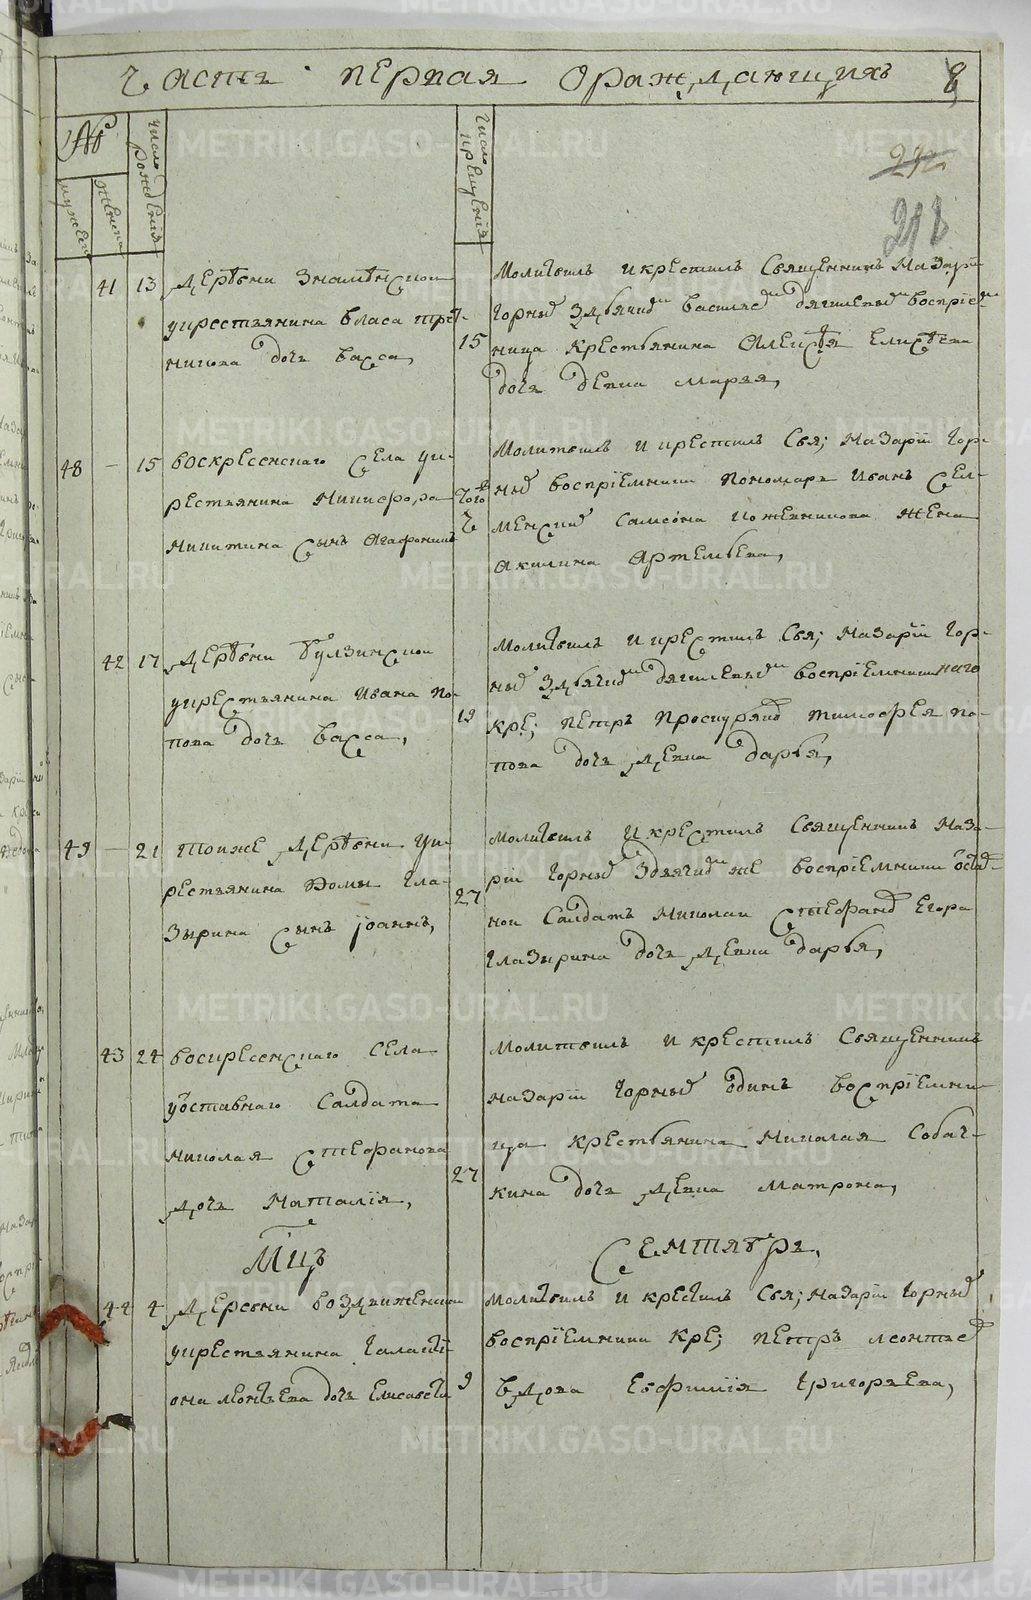 Часть первая ораждающихъ 8
№
число рождения
число крещения
мужеск
женска
242
218
41 13 Деревни Знаменской
укрестьянина Власа Трет-
никова дочь Васса,
15
Молитвилъ и крестилъ Священникъ Назарiй
Горный Здьячко Василье воспрiем-
ница крестьянина Алексея Елисеева
дочь девка Марья,
48 — 15 Воскресенскаго Села ук-
рестьянина Никифора
Никитина сынъ Агафоникъ
Того ж
Молитвилъ и крестилъ Свя; Назарiй Гор-
ный воспрiемники пономарь Иванъ Сел-
менский Самсона Кожевникова жена
Акилина Артемьева,
42 17 Деревни Булзинской
укрестьянина Ивана По-
пова дочь Васса,
19
Молитвилъ и крестилъ Свя; Назарiй Гор-
ный Здьячко воспрiемники
кре; Петръ Проскуряко Тимофея По-
пова дочь девка Дарья,
49 — 21 Тойже деревни ук-
рестьянина Фомы Гла-
зырина сынъ Iоаннъ,
27
Молитвилъ и крестилъ Священникъ Наза-
рiй Горный Здьячко же воспрiемники остав-
ной Салдатъ Николай Стефано Егора
Глазырина дочь девка Дарья,
43 24 Воскресенскаго села
уоставнаго Салдата
Николая Стефанова
дочь Наталiя,
27
Молитвилъ и крестилъ Священникъ
Назарiй Горный одинъ воспрiемни-
ца крестьянина Николая Собач-
кина дочь девка Матрона,
Мцъ Семтябрь,
44 4 Деревни Воздвиженской
укрестьянина Галакти-
она Леонтьева дочь Елисавета
9
Молитвилъ и крестилъ Свя; Назарiй Горный
воспрiемники кре; Петръ Леонтье
вдова Евфимiя Григорьева,
METRIKI.GASO-URAL.RU